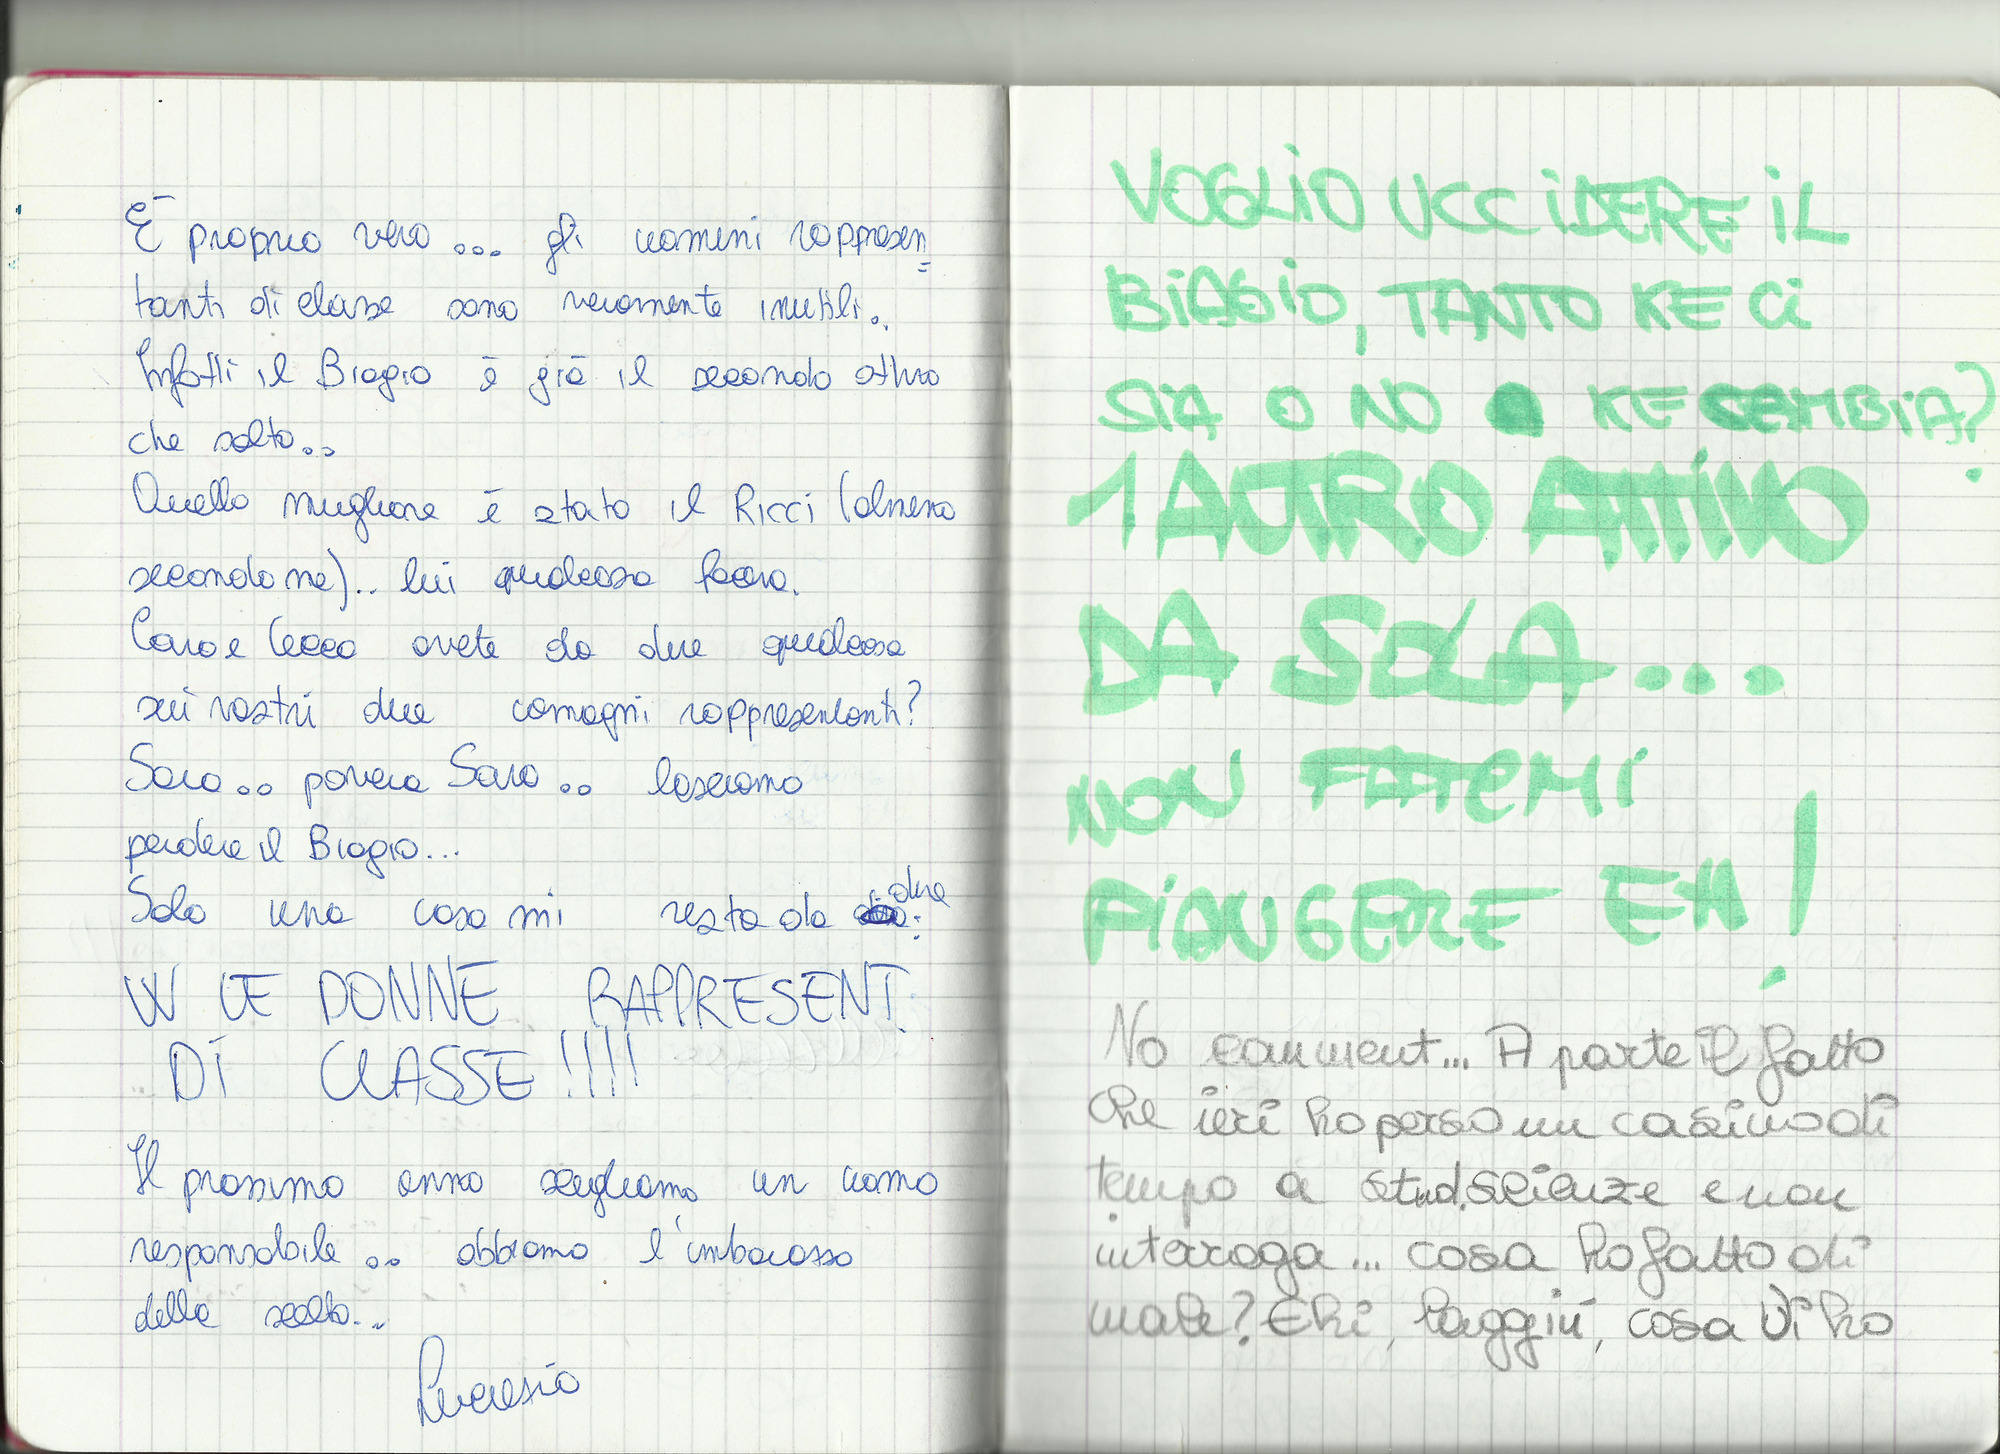 È proprio vero... gli uomini rappresen=
tanti di classe sono veramente inutili..
Infatti il Biagio è già il secondo attivo
che salta..
Quello migliore è stato il Ricci (almeno
secondo me).. lui qualcosa faceva.
Caro e Cecco avete da dire qualcosa
sui vostri due comagni rappresentanti?
Sara.. povera Sara.. lasciamo
perdere il Biagio...
Solo una cosa mi resta da dire:
W LE DONNE RAPPRESENT.
DI CLASSE!!!!
Il prossimo anno scegliamo un uomo
responsabile.. abbiamo l'imbarazzo
della scelta...
Lucrezia
VOGLiO UCCiDERE iL
BiAGiO, TANTO KE Ci
SiA O NO KE CAMBiA?
1 ALTRO ATTiVO
DA SOLA...
NON FATEMi
PiANGERE EH!
No comment... A parte il fatto
che ieri ho perso un casino di
tempo a stud. scienze e non
interroga... cosa ho fatto di
male? Ehi, laggiù, cosa vi ho